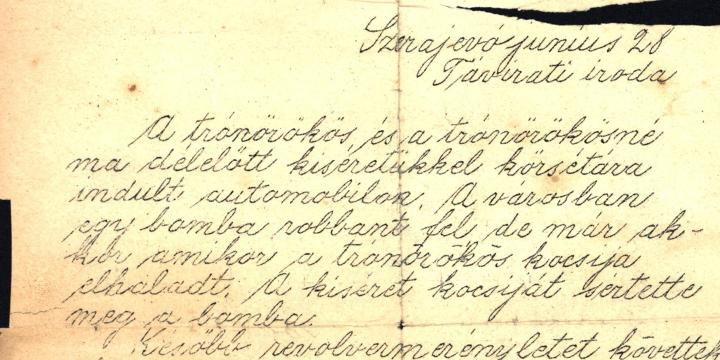 Szerajevó junius 28
Távirati iroda
A trónörökös és a trónörökösné
ma délelőtt kiséretükkel körsétára
indult automobilon. A városban
egy bomba robbant fel de már ak-
kor amikor a trónörökös kocsija
elhaladt. A kiséret kocsiját sertette
meg a bomba.
Később revolvermerényletet követtek